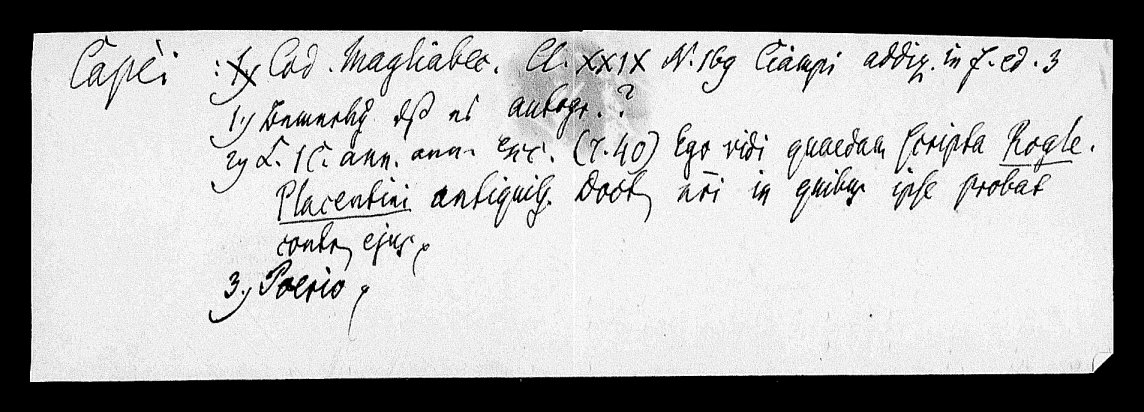 Capèi : 1) Cod. Magliabec. Cl. XXIX N. 169 Ciampi addiz. in f. ed. 3
1.) dß es autogr. ?
2) L. 1 C. ann. (7.40) Ego vidi quaedam scripta Rogle.
Placentini antiquiss. Doct nri in quibus ipse probat
contr ejus
3.) Poerio